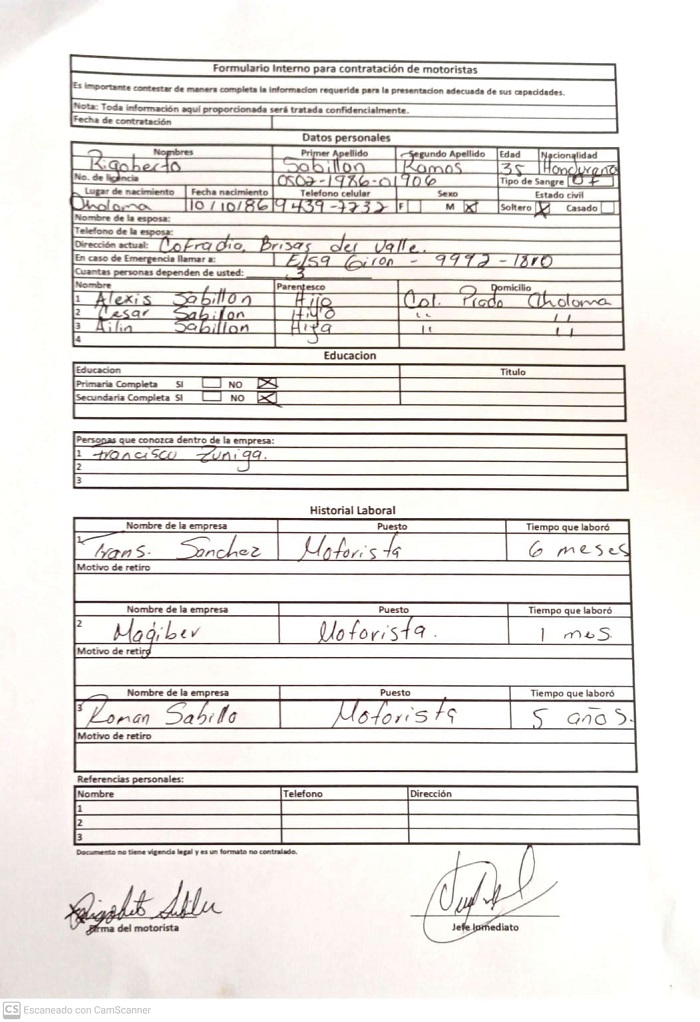 Formulario Interno para contratación de motoristas
Es importante contestar de manera completa la informacion requeride para la presentacion adecuada de sus capacidades.
Nota: Toda información aquí proporcionada será tratada confidencialmente.
Fecha de contratación
Datos personales
Nombres Primer Apellido Segundo Apellido Edad Nacionalidad
Rigoberto Sabillon Ramos 35 Hondureño
No. de licencia 0502-1986-01906 Tipo de Sangre O+
Lugar de nacimiento Fecha nacimiento Telefono celular Sexo Estado civil
Choloma 10/10/86 9439-7732 F M Soltero Casado
Nombre de la esposa:
Telefono de la esposa:
Dirección actual: Cofradia, Brisas del Valle.
En caso de Emergencia llamar a: Elsa Giron - 9992-1810
Cuantas personas dependen de usted: 3
Nombre Parentesco Domicilio
1 Alexis Sabillon Hijo Col. Prado Choloma
2 Cesar Sabillon Hijo " "
3 Ailin Sabillon Hija " "
4
Educacion
Educacion Titulo
Primaria Completa SI NO
Secundaria Completa SI NO
Personas que conozca dentro de la empresa:
1 Francisco Zuniga.
2
3
Historial Laboral
Nombre de la empresa Puesto Tiempo que laboró
1 Trans. Sanchez Motorista 6 meses
Motivo de retiro
Nombre de la empresa Puesto Tiempo que laboró
2 Magiber Motorista. 1 mes
Motivo de retiro
Nombre de la empresa Puesto Tiempo que laboró
3 Roman Sabillo Motorista 5 años.
Motivo de retiro
Referencias personales:
Nombre Telefono Dirección
1
2
3
Documento no tiene vigencia legal y es un formato no contralado.
Firma del motorista Jefe Inmediato
CS Escaneado con CamScanner